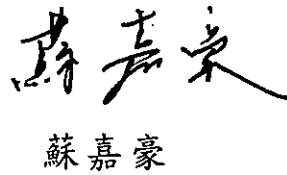 蘇嘉豪
蘇嘉豪